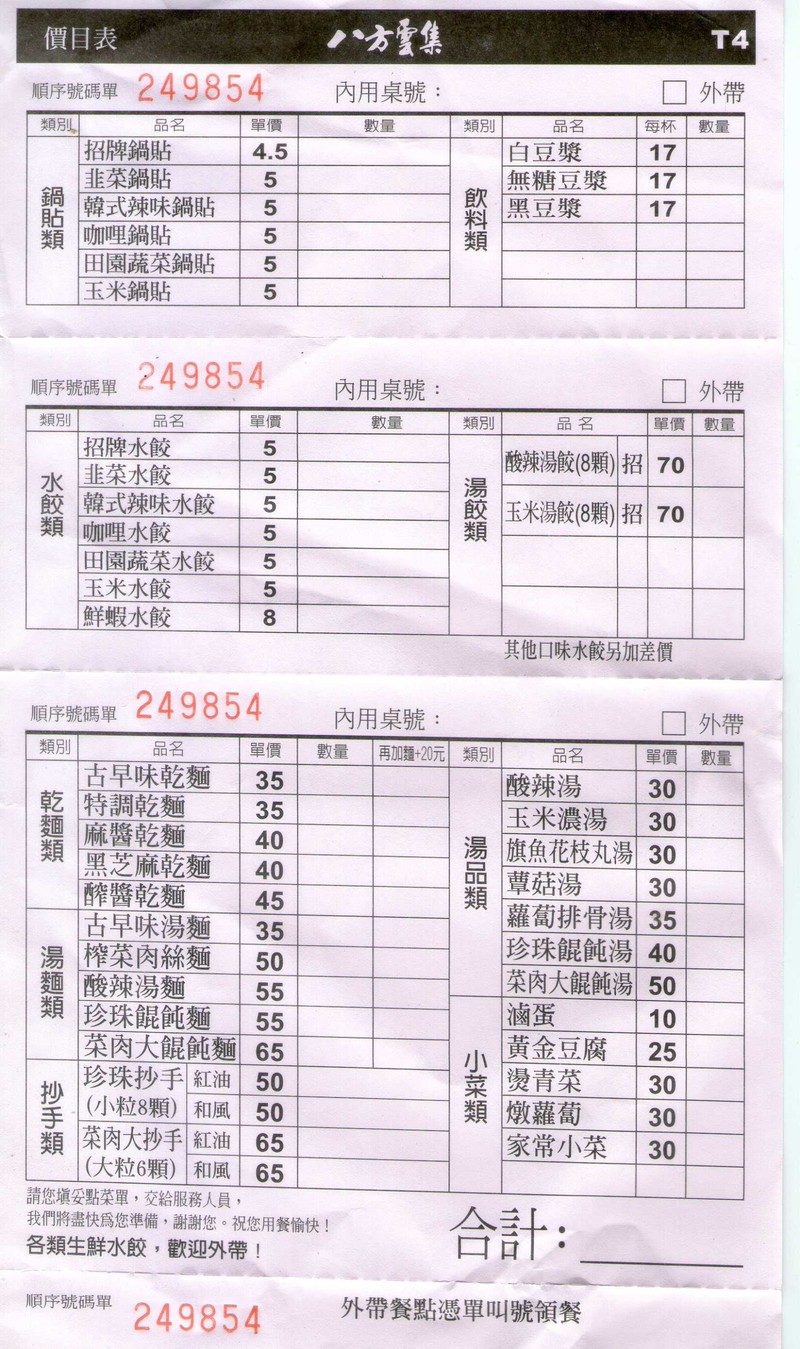 價目表 八方雲集 T4
順序號碼單 249854 內用桌號： □ 外帶
類別 品名 單價 數量 類別 品名 每杯 數量
鍋貼類
招牌鍋貼 4.5
韭菜鍋貼 5
韓式辣味鍋貼 5
咖哩鍋貼 5
田園蔬菜鍋貼 5
玉米鍋貼 5
飲料類
白豆漿 17
無糖豆漿 17
黑豆漿 17
順序號碼單 249854 內用桌號： □ 外帶
類別 品名 單價 數量 類別 品名 單價 數量
水餃類
招牌水餃 5
韭菜水餃 5
韓式辣味水餃 5
咖哩水餃 5
田園蔬菜水餃 5
玉米水餃 5
鮮蝦水餃 8
湯餃類
酸辣湯餃(8顆) 招 70
玉米湯餃(8顆) 招 70
其他口味水餃另加差價
順序號碼單 249854 內用桌號： □ 外帶
類別 品名 單價 數量 再加麵+20元 類別 品名 單價 數量
乾麵類
古早味乾麵 35
特調乾麵 35
麻醬乾麵 40
黑芝麻乾麵 40
醡醬乾麵 45
湯麵類
古早味湯麵 35
榨菜肉絲麵 50
酸辣湯麵 55
珍珠餛飩麵 55
菜肉大餛飩麵 65
抄手類
珍珠抄手 紅油 50
(小粒8顆) 和風 50
菜肉大抄手 紅油 65
(大粒6顆) 和風 65
湯品類
酸辣湯 30
玉米濃湯 30
旗魚花枝丸湯 30
蕈菇湯 30
蘿蔔排骨湯 35
珍珠餛飩湯 40
菜肉大餛飩湯 50
小菜類
滷蛋 10
黃金豆腐 25
燙青菜 30
燉蘿蔔 30
家常小菜 30
請您填妥點菜單，交給服務人員，
我們將盡快為您準備，謝謝您。祝您用餐愉快！
各類生鮮水餃，歡迎外帶！
合計：
順序號碼單 249854 外帶餐點憑單叫號領餐